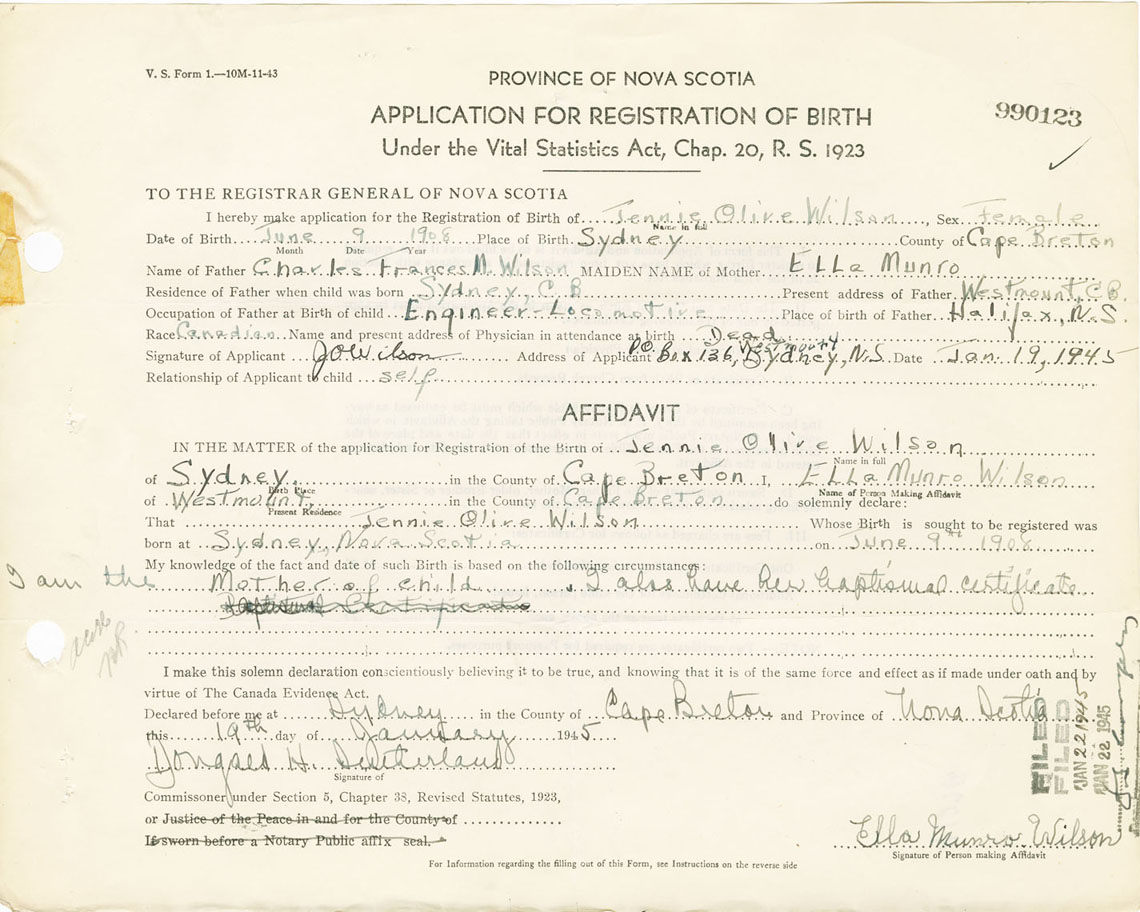 V. S. Form 1.—10M-11-43
PROVINCE OF NOVA SCOTIA
APPLICATION FOR REGISTRATION OF BIRTH
990123
Under the Vital Statistics Act, Chap. 20, R. S. 1923
TO THE REGISTRAR GENERAL OF NOVA SCOTIA
I hereby make application for the Registration of Birth of Jennie Olive Wilson, Sex Female
Name in full
Date of Birth June 9 1908 Place of Birth Sydney County of Cape Breton
Month Date Year
Name of Father Charles Frances M. Wilson MAIDEN NAME of Mother Ella Munro
Residence of Father when child was born Sydney, C.B Present address of Father Westmount, C.B.
Occupation of Father at Birth of child Engineer-Locomotive Place of birth of Father Halifax, N.S.
Race Canadian Name and present address of Physician in attendance at birth Dead
Signature of Applicant JOWilson Address of Applicant P.O. Box 136, Westmount Sydney, N.S. Date Jan. 19, 1945
Relationship of Applicant to child self
AFFIDAVIT
IN THE MATTER of the application for Registration of the Birth of Jennie Olive Wilson
Name in full
of Sydney in the County of Cape Breton I, Ella Munro Wilson
Birth Place Name of Person Making Affidavit
of Westmount, in the County of Cape Breton do solemnly declare:
Present Residence
That Jennie Olive Wilson Whose Birth is sought to be registered was
born at Sydney, Nova Scotia on June 9th 1908
My knowledge of the fact and date of such Birth is based on the following circumstances:
I am the Mother of child. I also have her baptismal certificate
Baptismal Certificate
I make this solemn declaration conscientiously believing it to be true, and knowing that it is of the same force and effect as if made under oath and by
virtue of The Canada Evidence Act.
Declared before me at Sydney in the County of Cape Breton and Province of Nova Scotia
this 19th day of January 1945
H. Sutherland
Signature of
Commissoner under Section 5, Chapter 38, Revised Statutes, 1923,
or Justice of the Peace in and for the County of
If sworn before a Notary Public affix seal.
Ella Munro Wilson
Signature of Person making Affidavit
For Information regarding the filling out of this Form, see Instructions on the reverse side
FILED
JAN 22 1945
FILED
JAN 22 1945